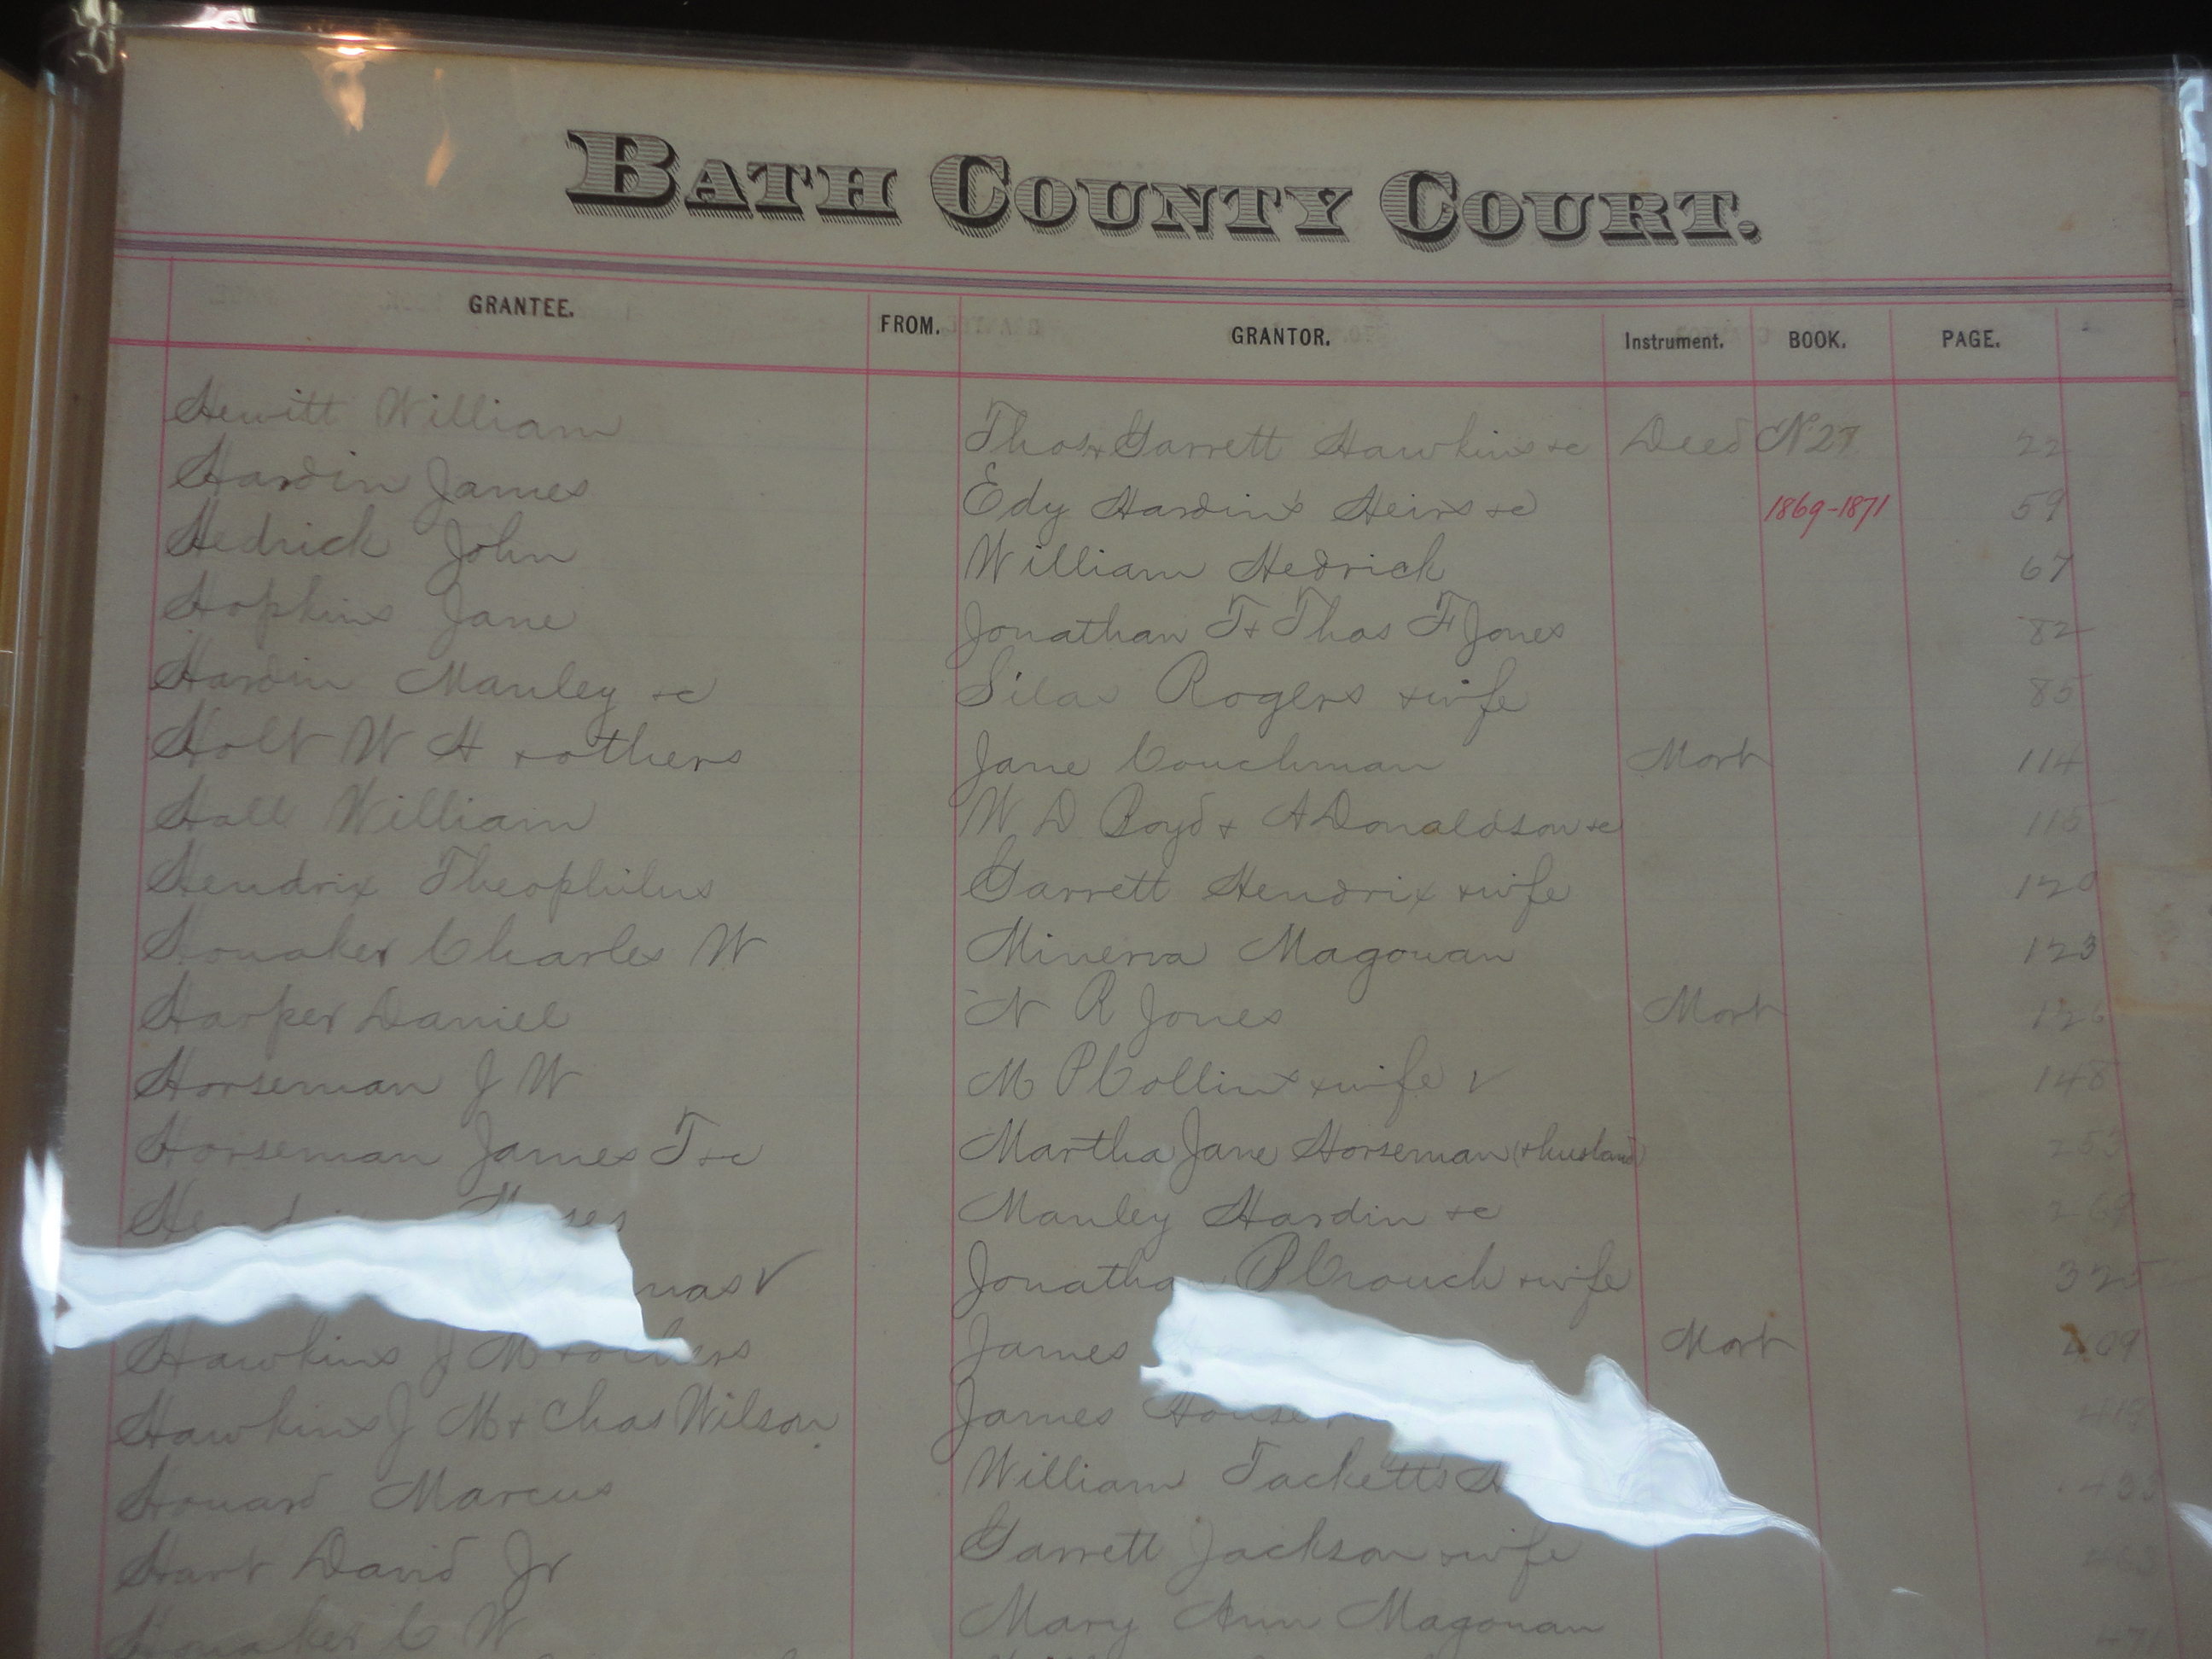 BATH COUNTY COURT.
GRANTEE. FROM. GRANTOR. Instrument. BOOK. PAGE.
Hewitt William Thos & Garrett Hawkins &c Deed No 27 22
Hardin James Edy Hardin's Heirs &c 1869-1871 59
Hedrick John William Hedrick 67
Hopkins Jane Jonathan T & Thos F Jones 82
Hardin Manley &c Silas Rogers & wife 85
Holt W H & others Jane Couchman Mort 114
Hall William W D Boyd & A Donaldson &c 115
Hendrix Theophilus Garrett Hendrix & wife 120
Honaker Charles W Minerva Magowan 123
Harper Daniel N R Jones Mort 126
Horseman J W M P Collins & wife 148
Horseman James T &c Martha Jane Horseman (& husband) 253
Manley Hardin &c 269
Jonathan P Crouch & wife 325
Hawkins J M & others James Mort 409
Hawkins J M & Chas Wilson James
Howard Marcus William Tackett's 433
Hart David Jr Garrett Jackson & wife 463
Honaker C W Mary Ann Magowan 471